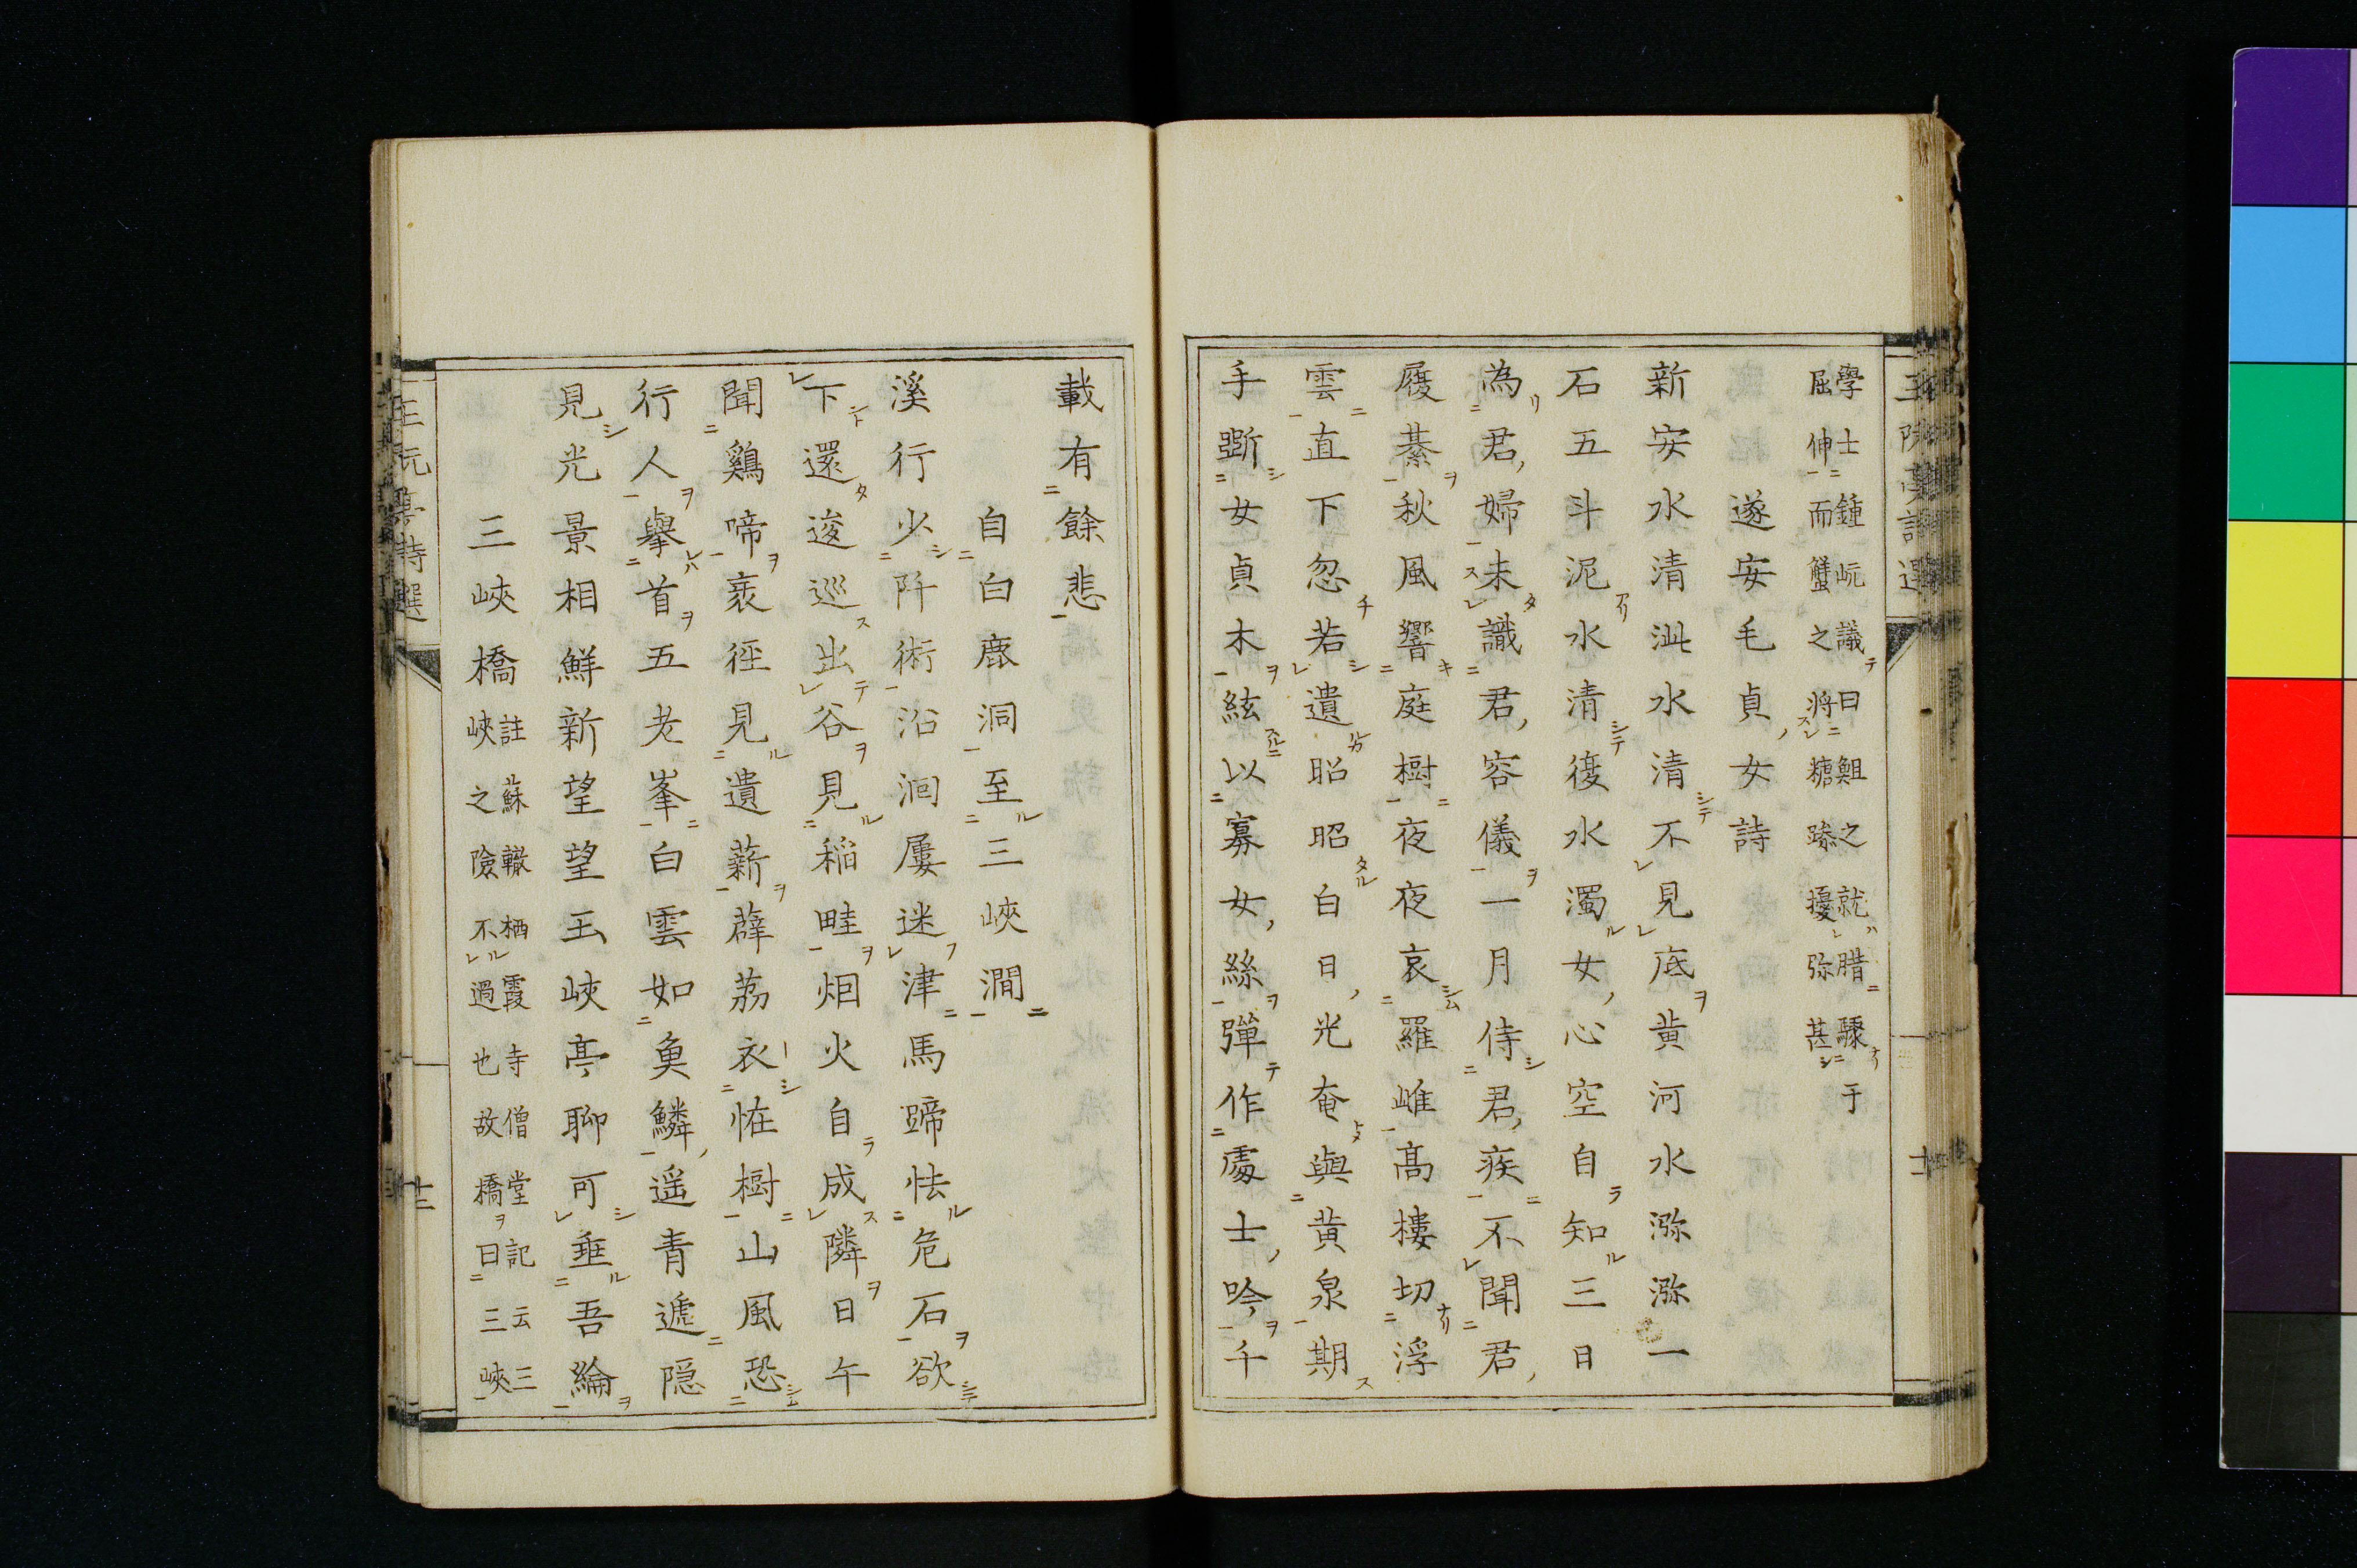 學士鍾岏議曰鮙之就腊驟于
屈伸而蟹之將糖躁擾弥甚
遂安毛貞女詩
新安水清泚水清不見底黄河水瀰瀰一
石五斗泥水清復水濁女心空自知三日
為君婦未識君容儀一月侍君疾不聞君
履綦秋風響庭樹夜夜哀羅雌高樓切浮
雲直下忽若遺昭昭白日光奄與黄泉期
手斲女貞木絃以寡女絲彈作處士吟千
載有餘悲
自白鹿洞至三峽澗
溪行少阡術沿洄屢迷津馬蹄怯危石欲
下還逡巡出谷見稲畦烟火自成隣日午
聞鷄啼衺徑見遺薪薜荔衣怪樹山風恐
行人舉首五老峯白雲如魚鱗遥青遞隠
見光景相鮮新望望玉峽亭聊可垂吾綸
三峽橋
註蘇轍栖霞寺僧堂記云三
峽之險不過也故橋曰三峽
王阮亭詩選
十一
王阮亭詩選
十二